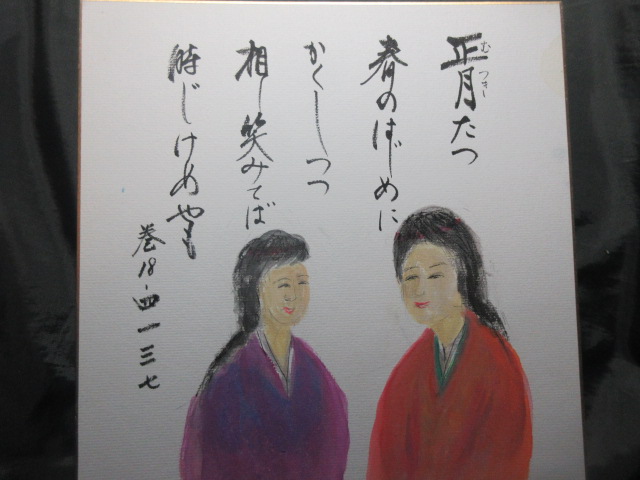 正月たつ
むつき
春のはじめに
かくしつつ
相し笑みてば
時じけめやも
巻18-四一三七